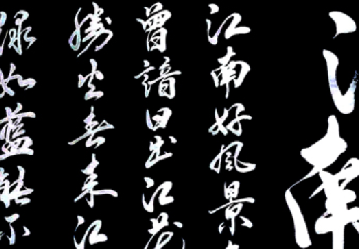 江南
江南好風景
曾諳日出江花
勝火春来江
緑如藍能不